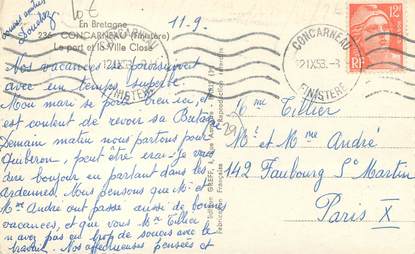 10 f
11.9.
En Bretagne
236 CONCARNEAU (Finistère)
Le port et la Ville Close
bonnes amitiés
Nos vacances se poursuivent
avec un temps superbe.
Mon mari se porte bien ici, et
est content de revoir sa Bretagne
Demain matin nous partons pour
Quiberon, peut être irai-je vous
dire bonjour en partant dans les
Ardennes. Nous pensons que Mr et
Mme André ont passé aussi de bonnes
vacances, et que vous Mme Tillier
n'avez pas eu trop de soucis avec le
travail. Nos affectueuses pensées et
CONCARNEAU
12 IX 53
FINISTERE
CONCARNEAU
12 IX 53
FINISTERE
12F
RF
29
Mme Tillier
Mr et Mme André
142 Faubourg St Martin
Paris X